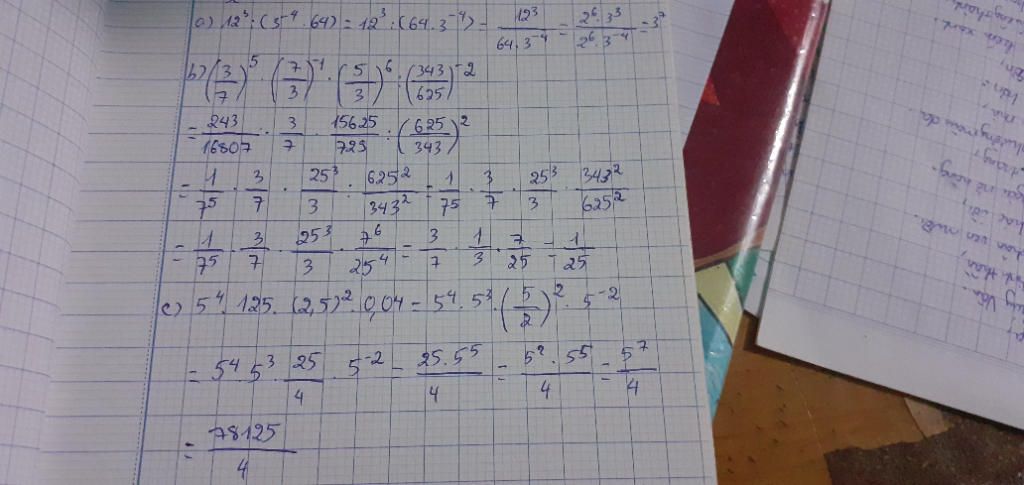 a) 12³ : (3⁻⁴ . 64) = 12³ : (64 . 3⁻⁴) = 12³/(64 . 3⁻⁴) = (2⁶ . 3³)/(2⁶ . 3⁻⁴) = 3⁷
b) (3/7)⁵ . (7/3)⁻¹ . (5/3)⁶ : (343/625)⁻²
= 243/16807 . 3/7 . 15625/729 : (625/343)²
= 1/7⁵ . 3/7 . 25³/3 : 625²/343² = 1/7⁵ . 3/7 . 25³/3 . 343²/625²
= 1/7⁵ . 3/7 . 25³/3 . 7⁶/25⁴ = 3/7 . 1/3 . 7/25 = 1/25
c) 5⁴ . 125 . (2,5)² . 0,04 = 5⁴ . 5³ . (5/2)² . 5⁻²
= 5⁴ . 5³ . 25/4 . 5⁻² = (25 . 5⁵)/4 = (5² . 5⁵)/4 = 5⁷/4
= 78125/4